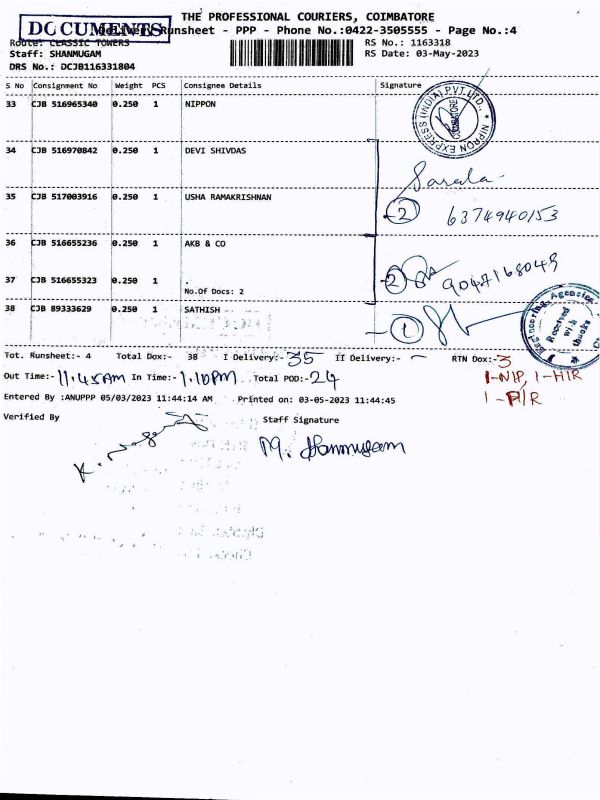 THE PROFESSIONAL COURIERS, COIMBATORE
DOCUMENTS
Delivery Runsheet - PPP - Phone No.:0422-3505555 - Page No.:4
Route: CLASSIC TOWERS
RS No.: 1163318
Staff: SHANMUGAM
RS Date: 03-May-2023
DRS No.: DCJB116331804
S No Consignment No Weight PCS Consignee Details Signature
33 CJB 516965340 0.250 1 NIPPON
NIPPON EXPRESS (INDIA) PVT. LTD., COIMBATORE
34 CJB 516970842 0.250 1 DEVI SHIVDAS
Sarala
35 CJB 517003916 0.250 1 USHA RAMAKRISHNAN
2 6374940153
36 CJB 516655236 0.250 1 AKB & CO
37 CJB 516655323 0.250 1 .
2 9047168049
No.Of Docs: 2
38 CJB 89333629 0.250 1 SATHISH
1
Agencies
Received with thanks
Tot. Runsheet:- 4 Total Dox:- 38 I Delivery:- 35 II Delivery:- - RTN Dox:- 3
Out Time:- 11.45AM In Time:- 1.10PM Total POD:- 24
1-N/P, 1-H/R
1-P/R
Entered By :ANUPPP 05/03/2023 11:44:14 AM Printed on: 03-05-2023 11:44:45
Verified By Staff Signature
M. Shanmugam